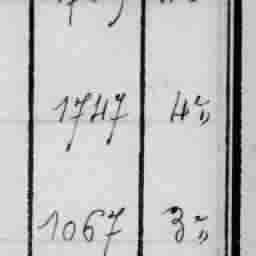 1747 4"„
1067 3"„